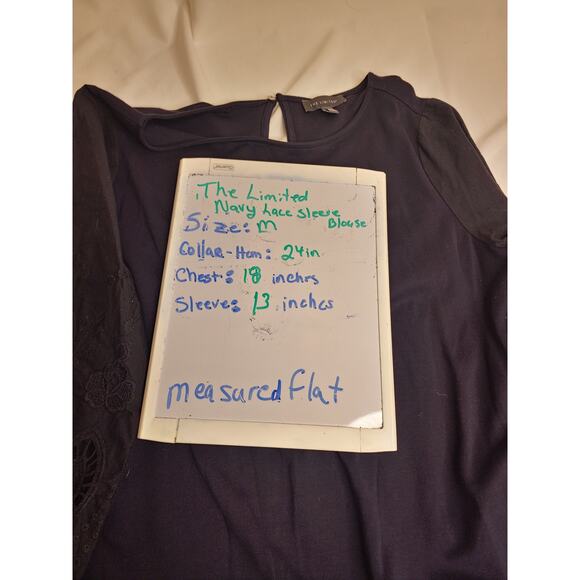 THE LIMITED
The Limited
Navy Lace Sleeve
Blouse
Size: M
Collar-Hem: 24in
Chest: 18 inches
Sleeve: 13 inches
measured flat